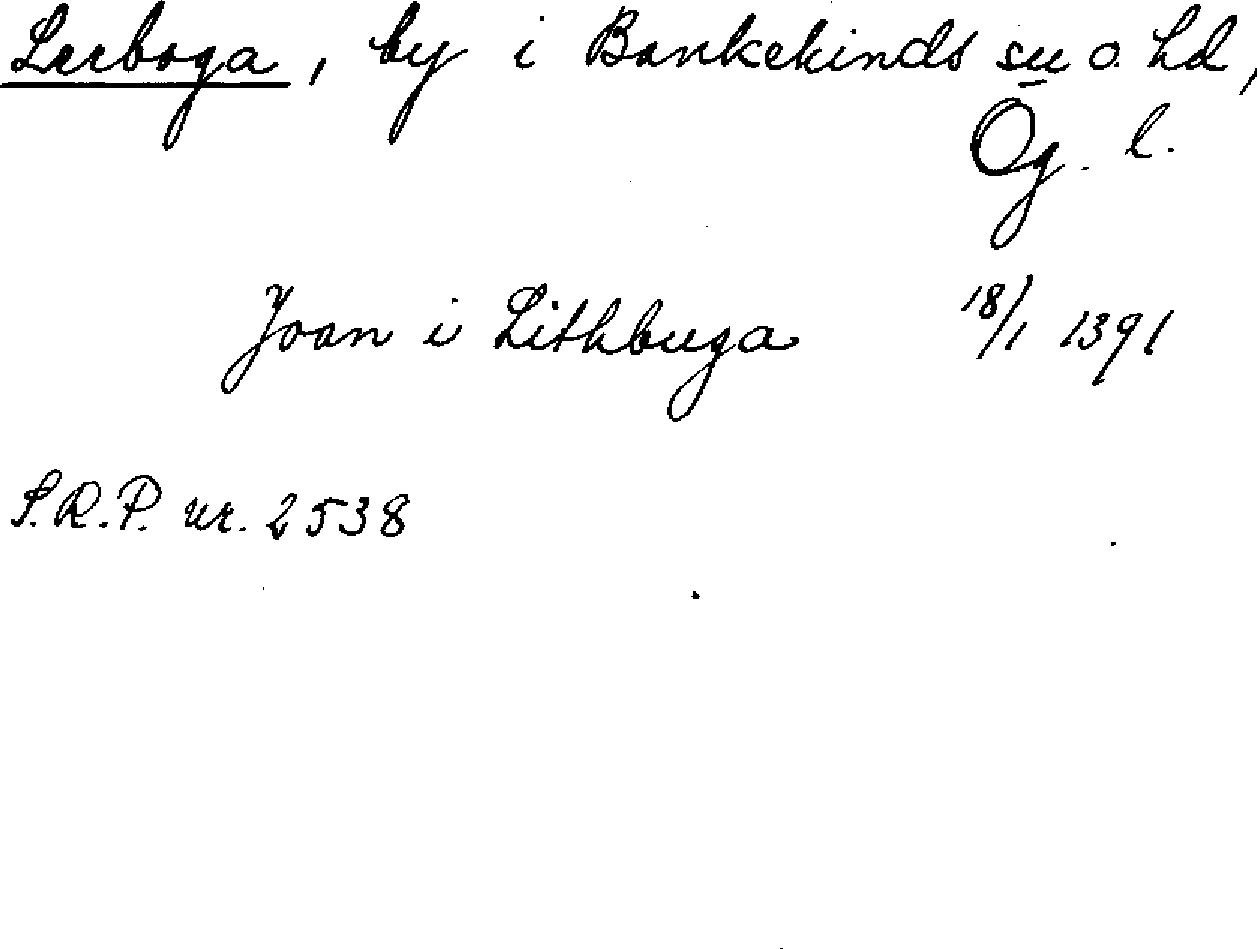 Leeboga, by i Bankekinds sn o. hd,
Ög. l.
Joan i Lithbuga 18/1 1391
S.R.P. nr. 2538